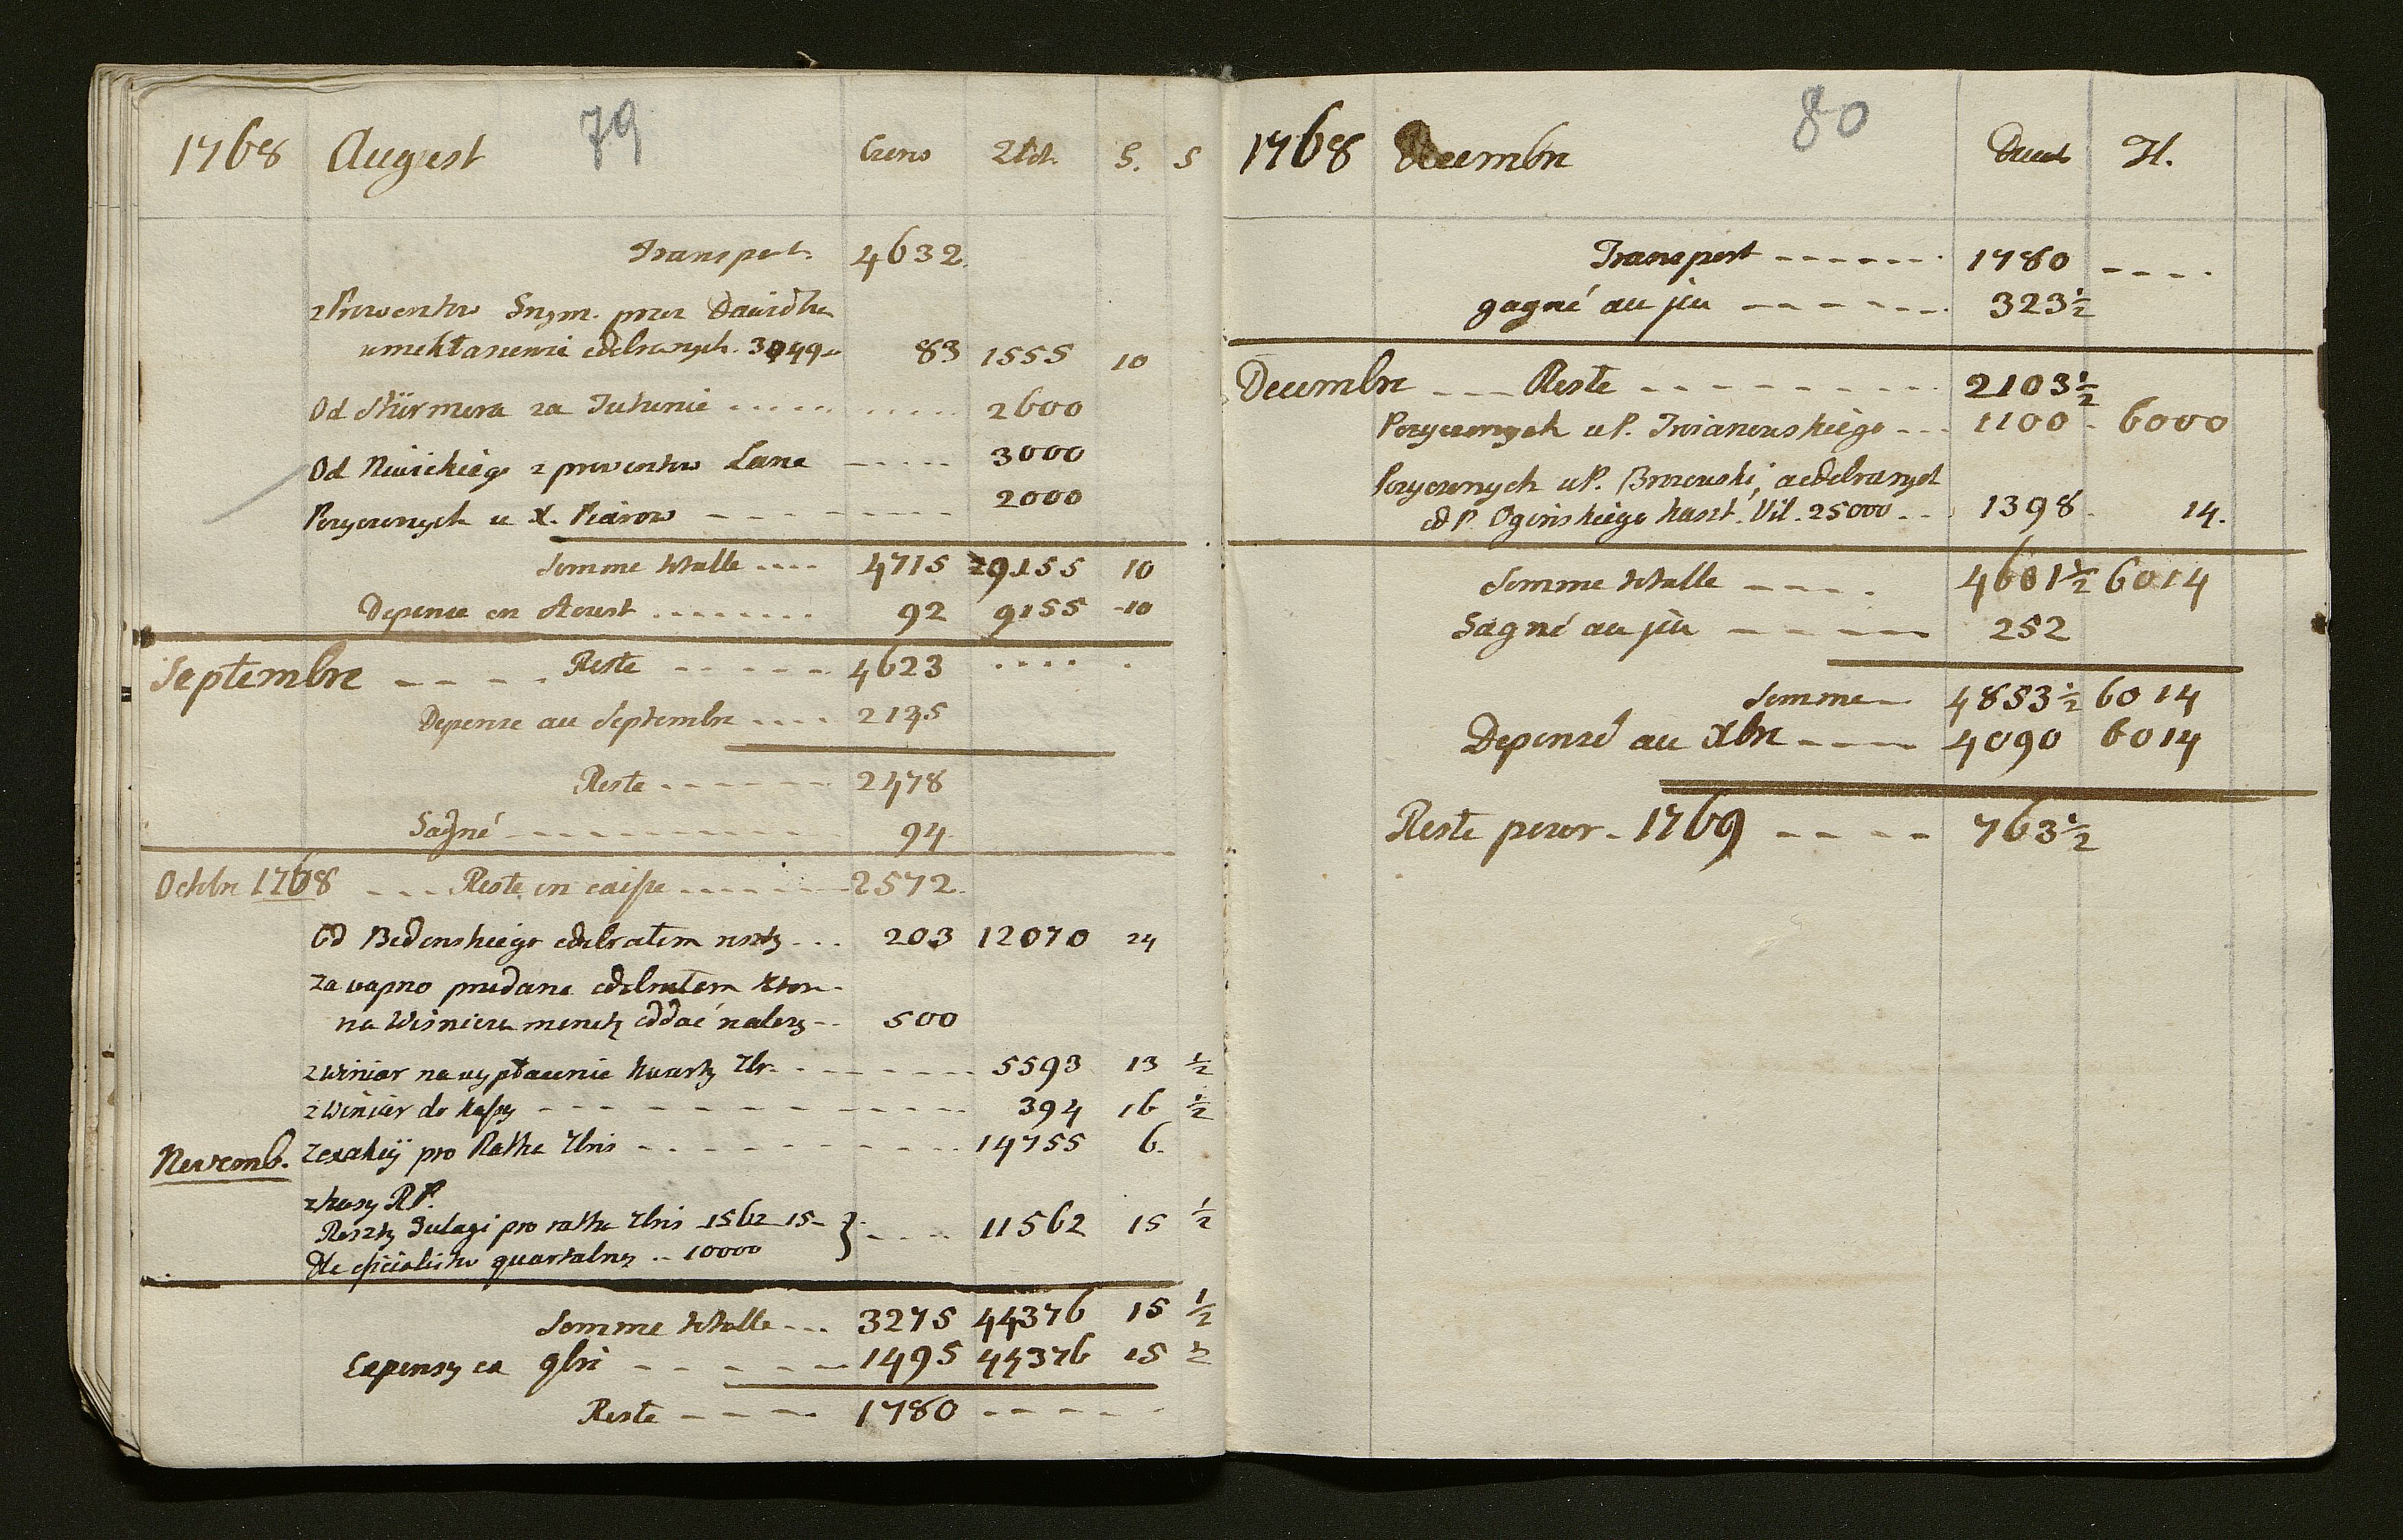 79
1768 August Czerw Złot. G. S
Transport. 4632.
z Prowentow Snym. przez Dawidka
umektasienni odebranych. 3049 83 1555 10
Od Stürmera za Jutrznie ..... ..... 2600
Od Nowickiego z prowentow Lane ----- 3000
Pozyczonych u X. Piarow ----- 2000
Somme totalle .... 4715 29155 10
Depense en Aoust ........ 92 9155 -10
Septembre ---- Reste ----- 4623 .... .
Depense au Septembre .... 2145
Reste ------ 2478
Gagné ----- 94
Octobr 1768 --- Reste en caisse ------ 2572.
Od Bedonskiego odebrałem reszty ... 203 12070 24
Za wapno przedane odebrałem ktore-
na Wisniera monetę oddać należy -- 500
z Winiar na wypłacenie kwarty 7br. ------ 5593 13 1/2
z Winiar do kassy ------ 394 16 1/2
Novemb. z exakcij pro Ratha 7bris ------ 14755 6.
z kasy RP.
Reszty pro ratha 7bris 1562 15-
Dla officialistow quartalny .. 10000 } ---- 11562 15 1/2
Somme totalle ... 3275 44376 15 1/2
Expensy ca 9bri ----- 1495 44376 15 1/2
Reste ---- 1780 ------
80
1768 Decembre Ducats Fl.
Transport ------- 1780 ----
gagné au jeu ------ 323 1/2
Decembre --- Reste -------- 2103 1/2
Pozyczonych u P. Iwanowskiego --- 1100 - 6000
Pozyczonych u P. Brzozowski, a odebranych
od P. Oginskiego kaszt. Vil. 25000 -- 1398 14.
Somme totalle ---- 4601 1/2 6014
Gagné au jeu ----- 252
Somme - 4853 1/2 6014
Depensé au Xbre ---- 4090 6014
Reste pour - 1769 ---- 763 1/2